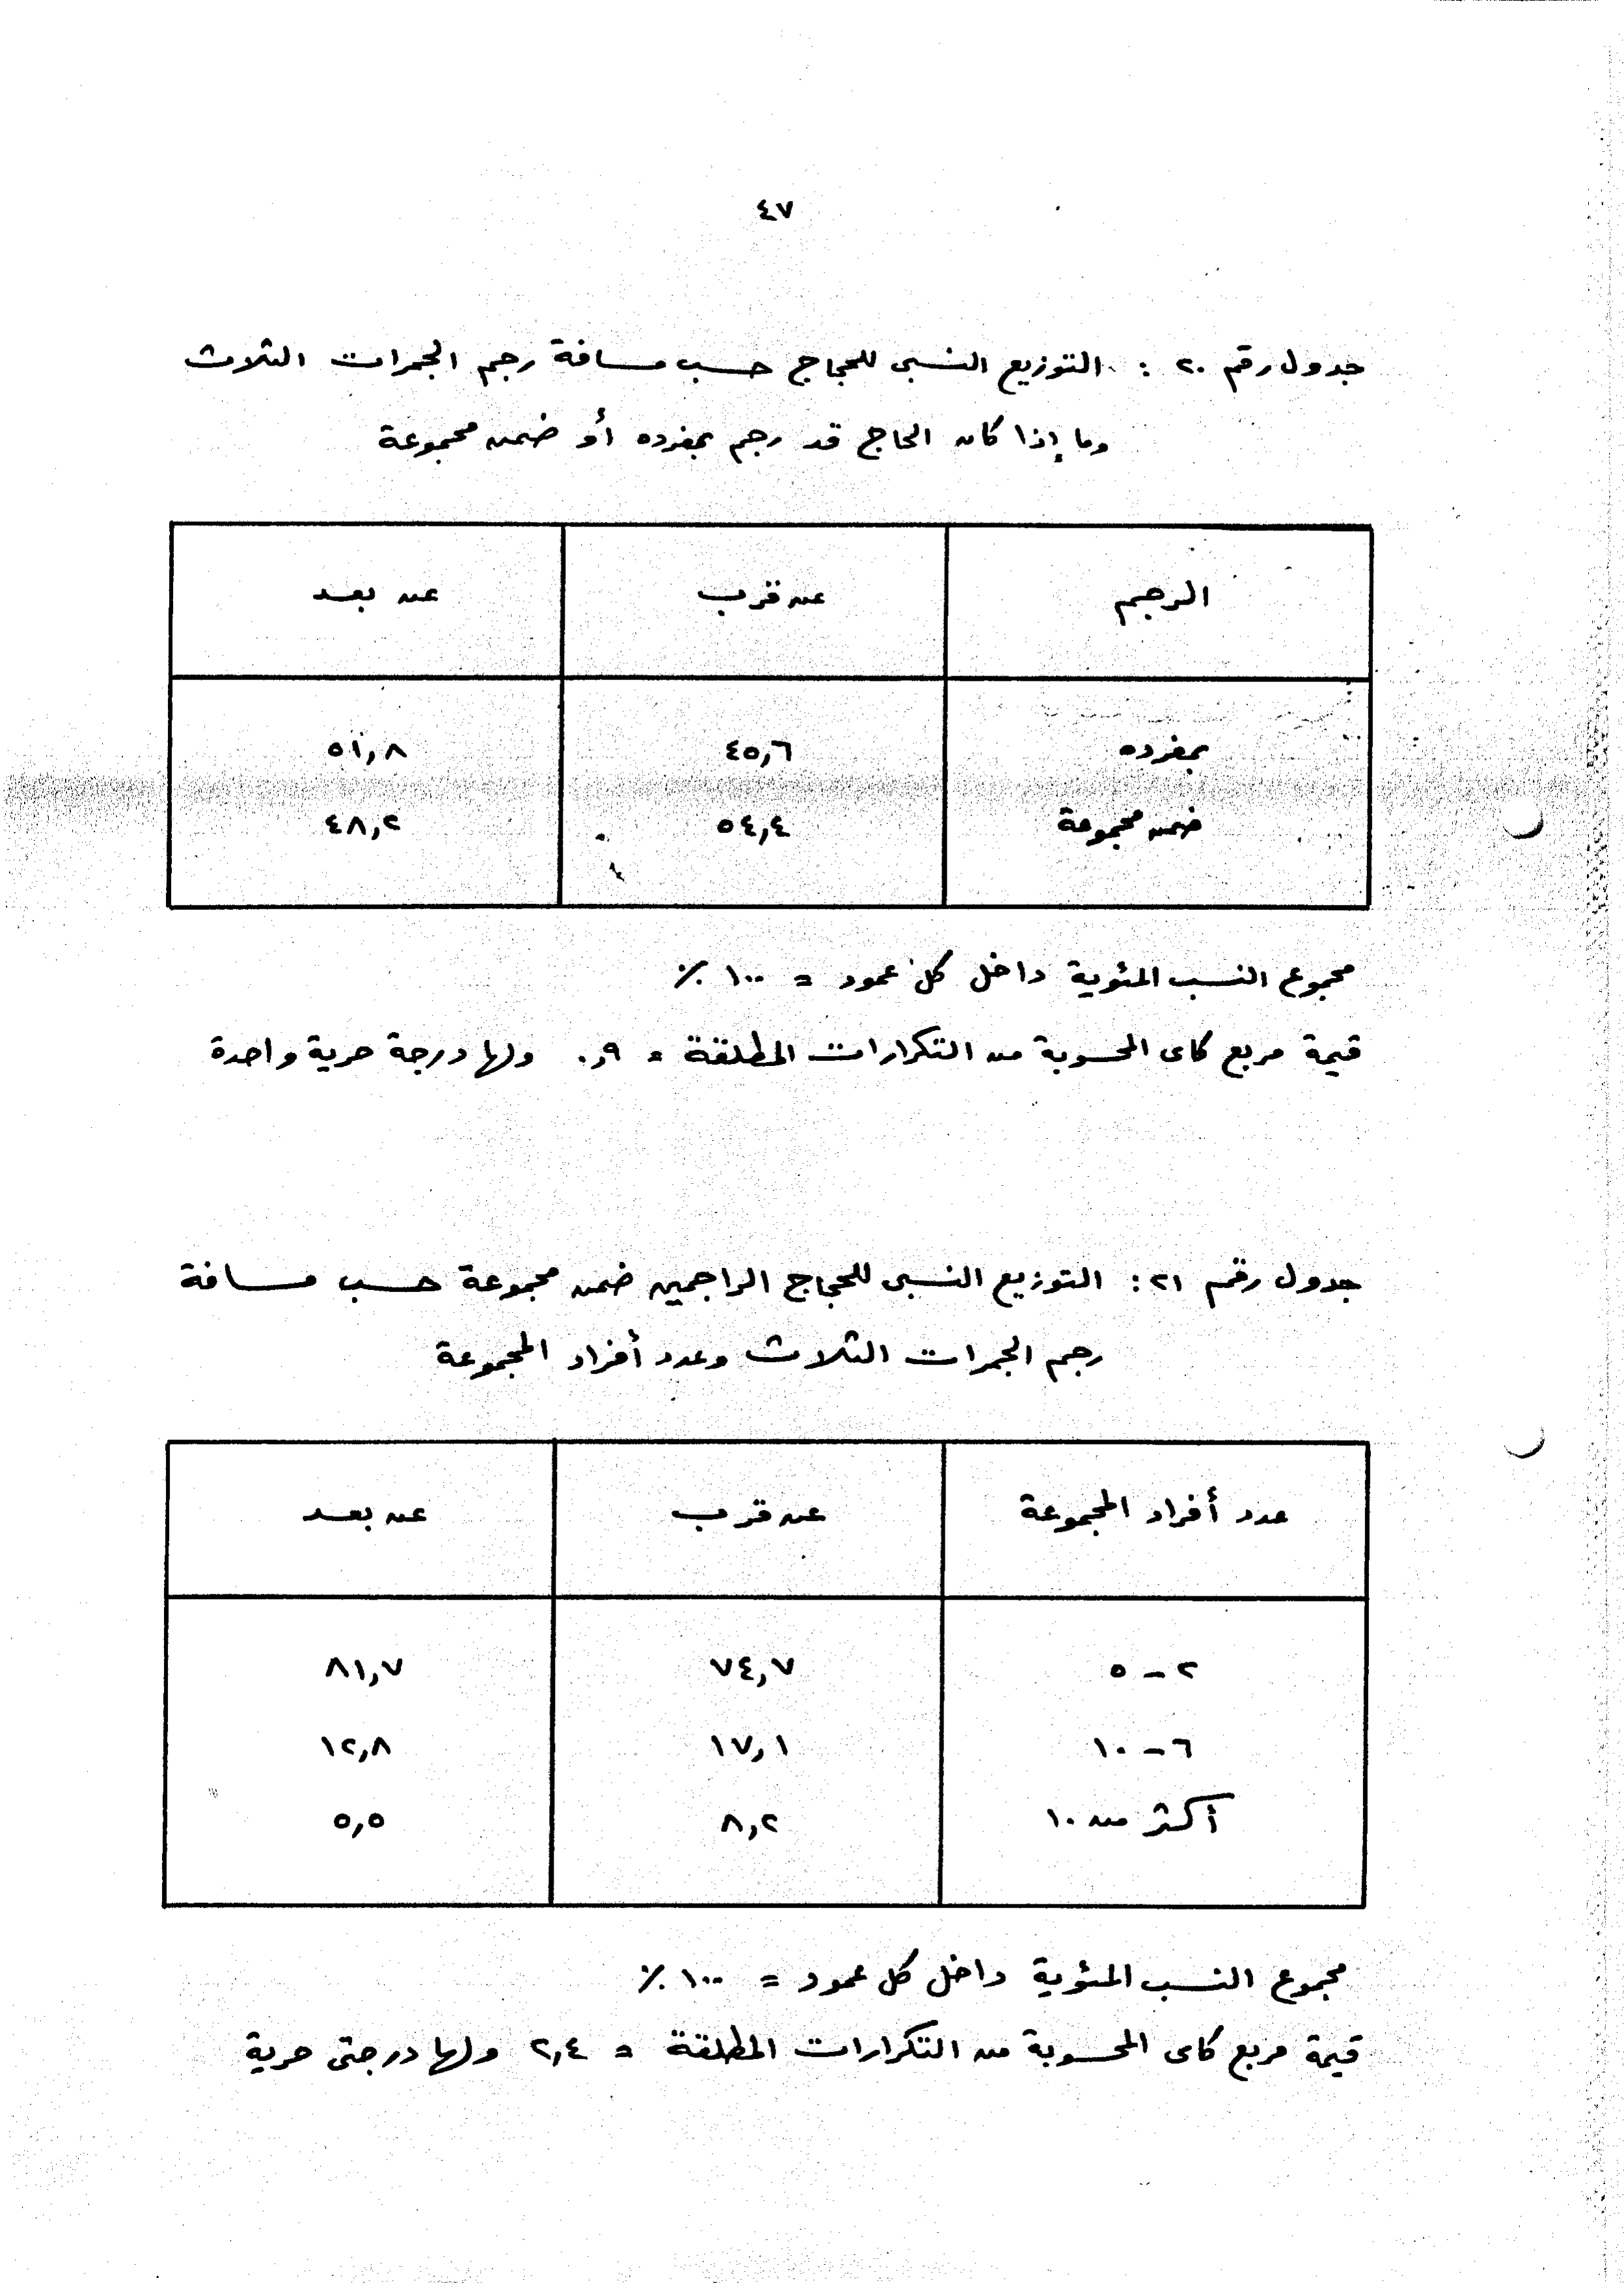 ٤٧
جدول رقم ٢٠ : التوزيع النسبى للحجاج حسب مسافة رجم الجمرات الثلاث
وما إذا كان الحاج قد رجم بمفرده أو ضمن مجموعة
الرجم عن قرب عن بعد
بمفرده ٤٥,٦ ٥١,٨
ضمن مجموعة ٥٤,٤ ٤٨,٢
مجموع النسب المئوية داخل كل عمود = ١٠٠ ٪
قيمة مربع كاى المحسوبة من التكرارات المطلقة = ٠,٩ ولها درجة حرية واحدة
جدول رقم ٢١ : التوزيع النسبى للحجاج الراجمين ضمن مجموعة حسب مسافة
رجم الجمرات الثلاث وعدد أفراد المجموعة
عدد أفراد المجموعة عن قرب عن بعد
٢ - ٥ ٧٤,٧ ٨١,٧
٦ - ١٠ ١٧,١ ١٢,٨
أكثر من ١٠ ٨,٢ ٥,٥
مجموع النسب المئوية داخل كل عمود = ١٠٠ ٪
قيمة مربع كاى المحسوبة من التكرارات المطلقة = ٢,٤ ولها درجتى حرية